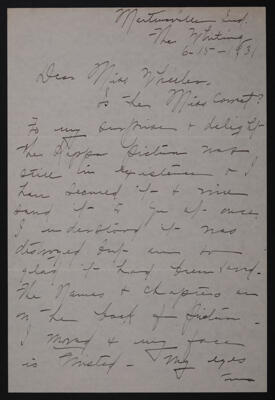 Martinsville Ind.
The Whiting
6-15-1931
Dear Miss Wheeler,
Is the Miss correct?
To my surprise & delight
the Kappa fiction was
still in existence & I
have secured it & will
send it to you at once.
I understood it was
destroyed but am so
glad it had been
The Names & Chapters are
on the back of fiction.
I moved & my face
is twisted - My eyes